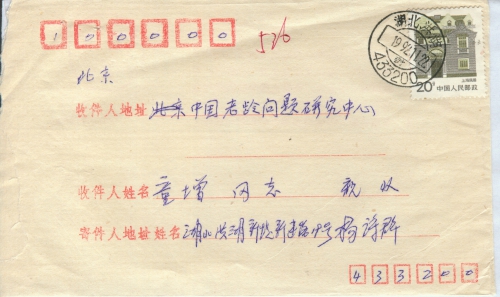 100000
526
湖北 洪湖
433200
20分 中国人民邮政
北京
收件人地址 北京中国老龄问题研究中心
收件人姓名 童增 同志 亲收
寄件人地址姓名 湖北洪湖新堤新建路 号 杨
433200